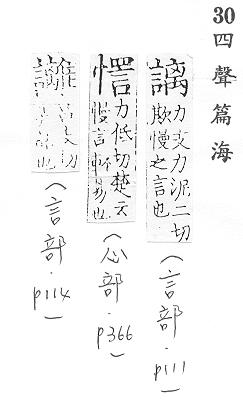 30四聲篇海
謧
力支力泥二切
欺慢之言也
(言部.p111)
力低切楚云
慢言輕易也
(心部.p366)
切
也
(言部.p114)